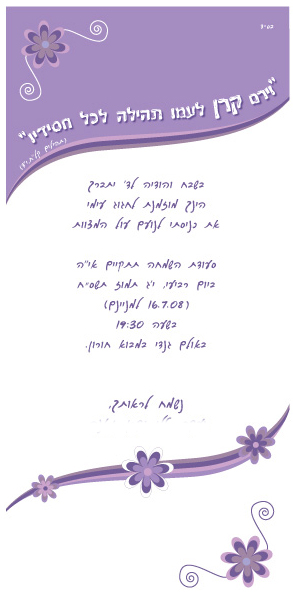 בס"ד
"וירם קרן לעמו תהילה לכל חסידיו"
(תהילים קמ"ח)
בשבח והודיה לד' יתברך
הינך מוזמנת לחגוג עימי
את כניסתי לנועם עול המצוות
סעודת השמחה תתקיים אי"ה
ביום רביעי, י"ג תמוז תשס"ח
(16.7.08 למניינם)
בשעה 19:30
באולם גנדי במבוא חורון.
נשמח לראותך,